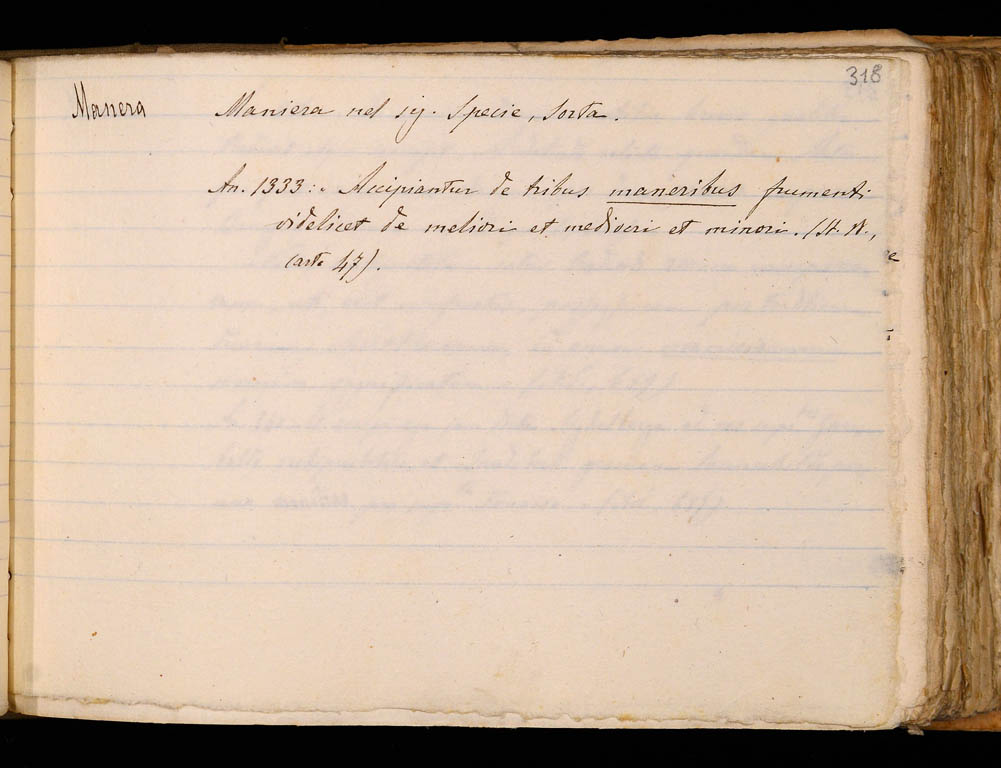 318
Manera Maniera nel sig. specie, sorta.
An. 1333: « Accipiantur de tribus maneribus frumenti
videlicet de meliori et mediocri et minori. (St. N.,
carte 47).